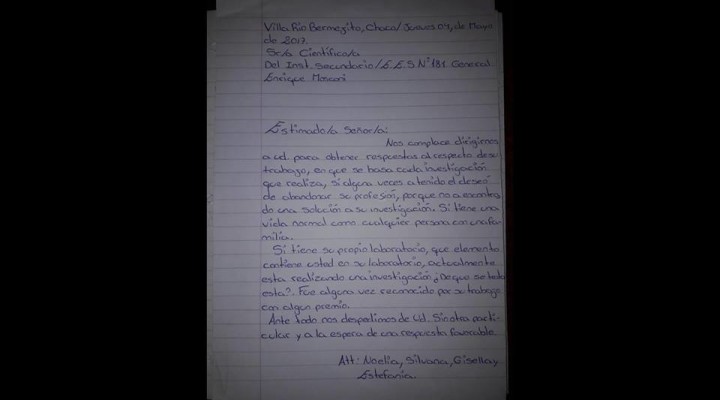 Villa Río Bermejito, Chaco/ Jueves 04, de Mayo
de 2017.
Sr/a Científico/a
Del Inst. Secundario/E.E.S N°181 General
Enrique Mosconi
Estimado/a Señor/a:
Nos complace dirigirnos
a ud. para obtener respuestas al respecto de su
trabajo, en que se basa cada investigación
que realiza, si alguna veces a tenido el deseo
de abandonar su profesión, porque no a encontra
do una solución a su investigación. Si tiene una
vida normal como cualquier persona con una fa-
milia.
Si tiene su propio laboratorio, que elemento
contiene usted en su laboratorio, actualmente
esta realizando una investigación ¿De que se trata
esta?. Fue alguna vez reconocido por su trabajo
con algun premio.
Ante todo nos despedimos de Ud. Sin otro parti-
cular y a la espera de una respuesta favorable
Att: Noelia, Silvana, Gisella y
Estefania.